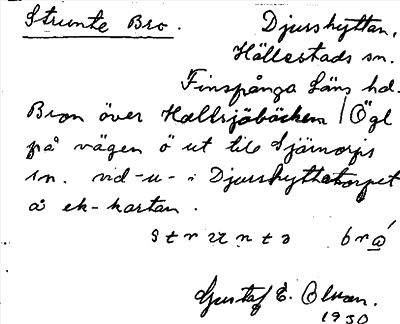 Strunte Bro.
Djurshyttan,
Hällestads sn.
Finspånga Läns hd.
Bron över Hällsjöbäcken / Ögl
på vägen ö ut till Tjärnorps
sn. vid -u- i Djurshyttetorpet
å ek-kartan.
struntə brọ́
Gustaf E. Olson.
1930